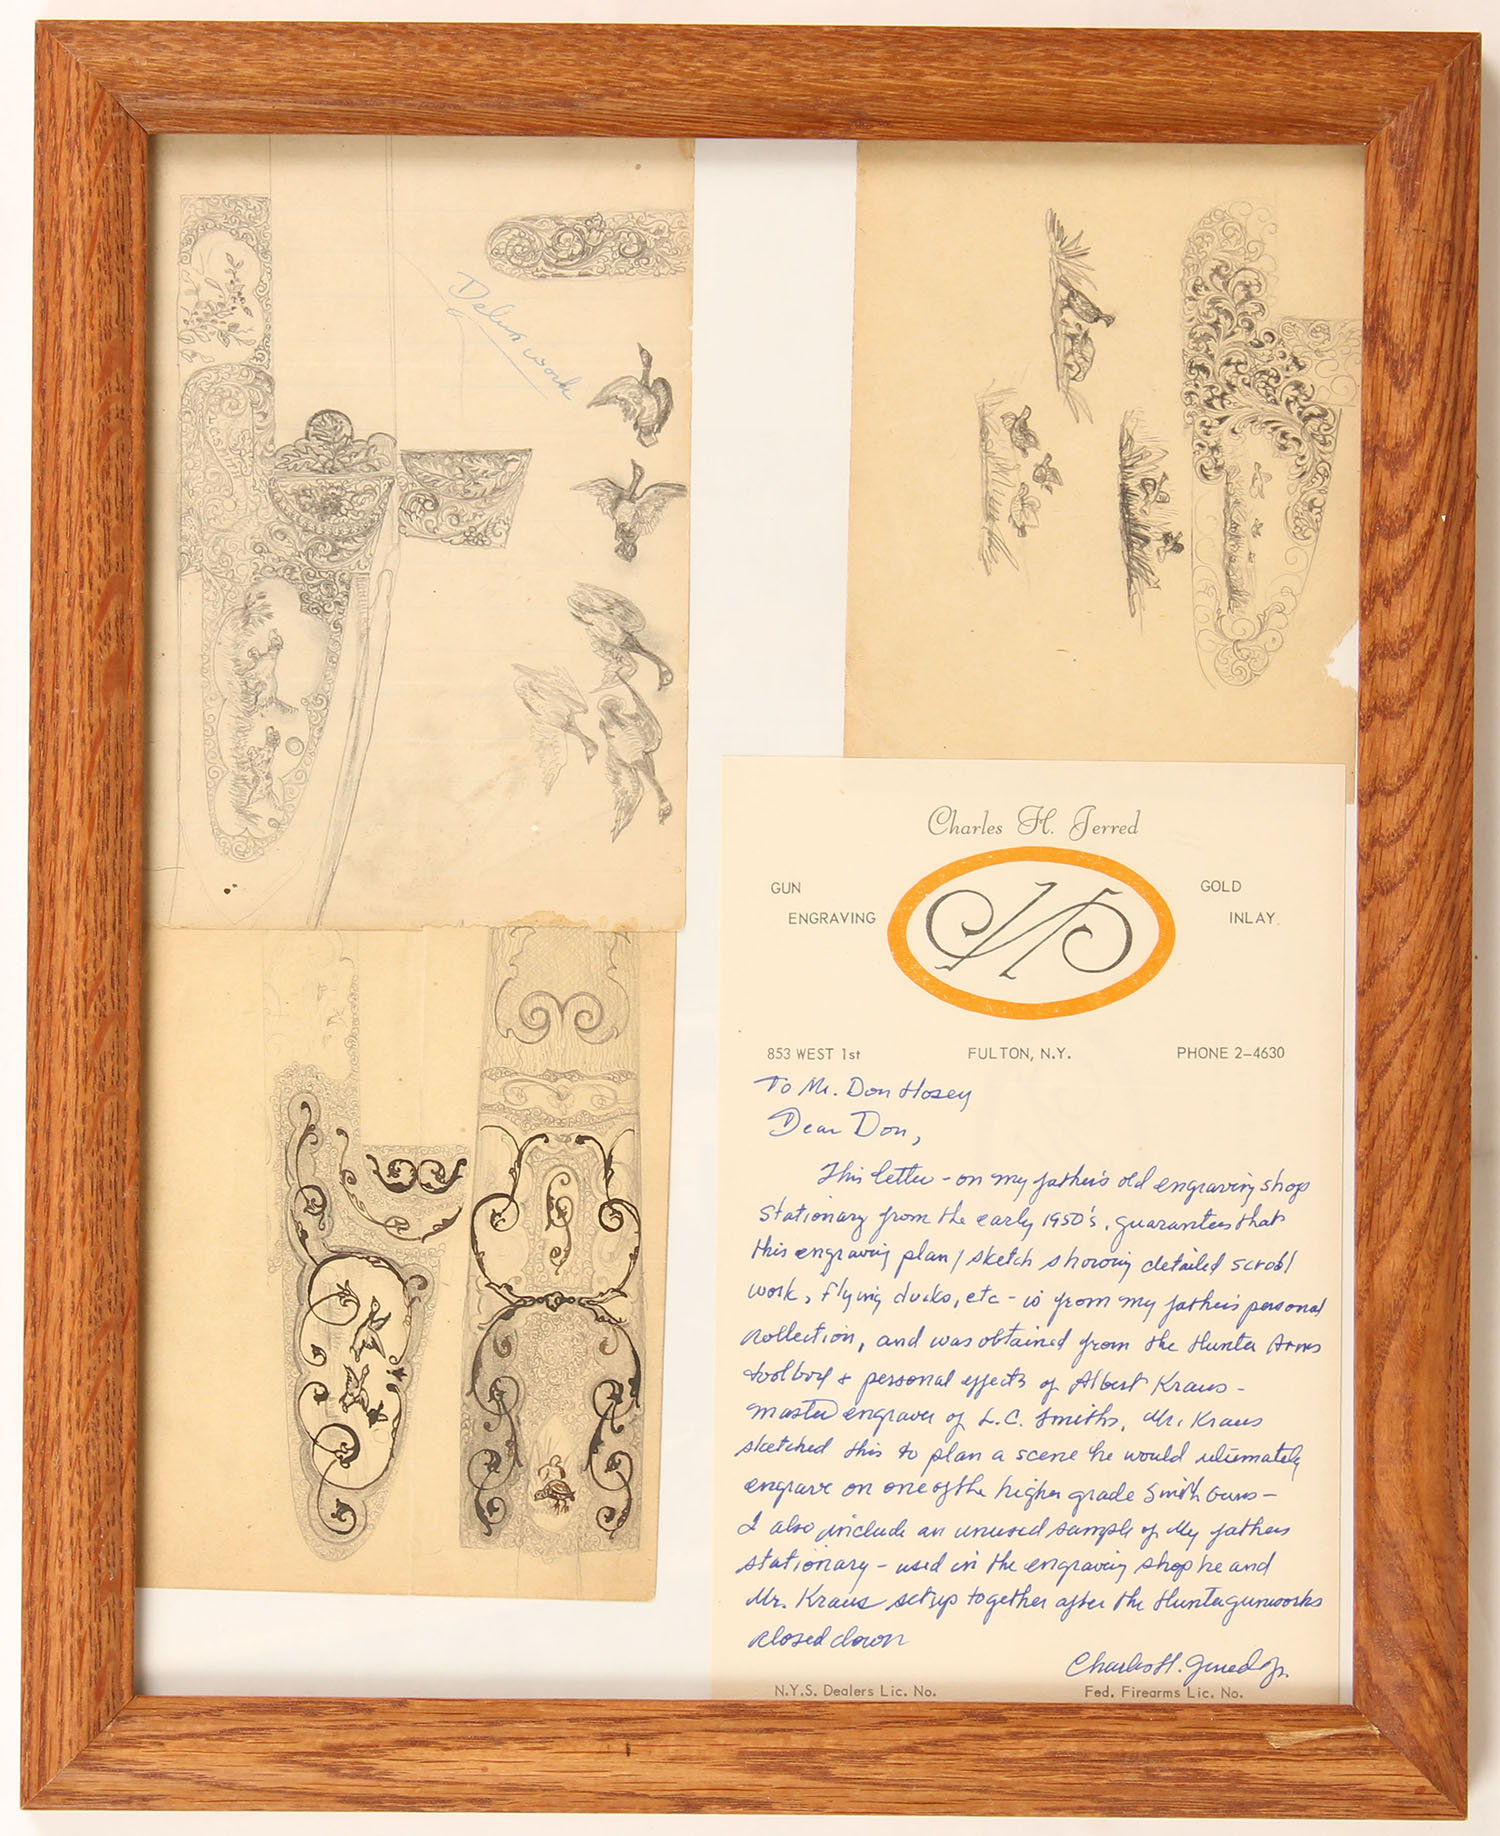 Delux work
Charles H. Jerred
GUN
ENGRAVING
GOLD
INLAY.
853 WEST 1st
FULTON, N.Y.
PHONE 2-4630
To Mr. Don Hosey
Dear Don,
This letter - on my father's old engraving shop
stationary from the early 1950's, guarantees that
this engraving plan / sketch showing detailed scroll
work, flying ducks, etc - is from my father's personal
collection, and was obtained from the Hunter Arms
toolbox & personal effects of Albert Kraus -
master engraver of L.C. Smiths. Mr. Kraus
sketched this to plan a scene he would ultimately
engrave on one of the higher grade Smith Guns -
I also include an unused sample of My fathers
stationary - used in the engraving shop he and
Mr. Kraus set up together after the Hunter gunworks
closed down
Charles H. Jerred Jr.
N.Y.S. Dealers Lic. No.
Fed. Firearms Lic. No.